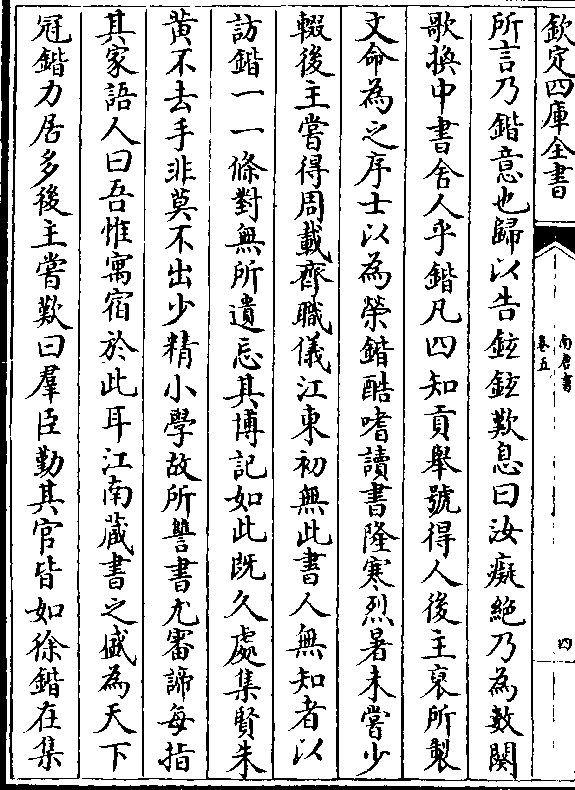 欽定四庫全書
南唐書
卷五
四
所言乃鍇意也歸以告鉉鉉歎息曰汝癡絶乃為數闋
歌換中書舍人乎鍇凡四知貢舉號得人後主裒所製
文命為之序士以為榮鍇酷嗜讀書隆寒烈暑未嘗少
輟後主嘗得周載齊職儀江東初無此書人無知者以
訪鍇一一條對無所遺忘其博記如此既久處集賢朱
黄不去手非莫不出少精小學故所讐書尤審諦每指
其家語人曰吾惟寓宿於此耳江南藏書之盛為天下
冠鍇力居多後主嘗歎曰羣臣勤其官皆如徐鍇在集